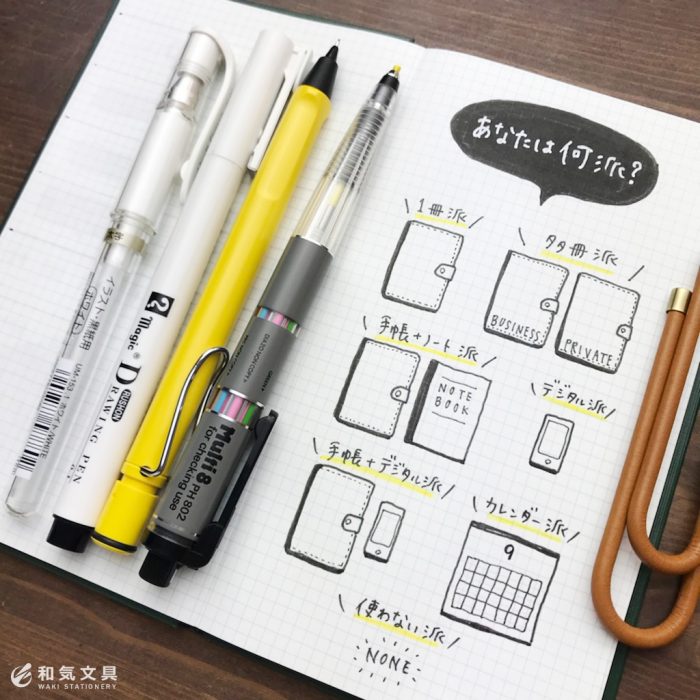 あなたは何派?
1冊派
多冊派
BUSINESS
PRIVATE
手帳+ノート派
NOTE
BOOK
デジタル派
手帳+デジタル派
カレンダー派
9
使わない派
NONE
イラスト・黒紙用
(ホワイト)
UM-153 1 ホワイト/WHITE
Magic®
DRAWING PEN
RUSHON
Multi8 PH802
for checking use
和気文具
WAKI STATIONERY